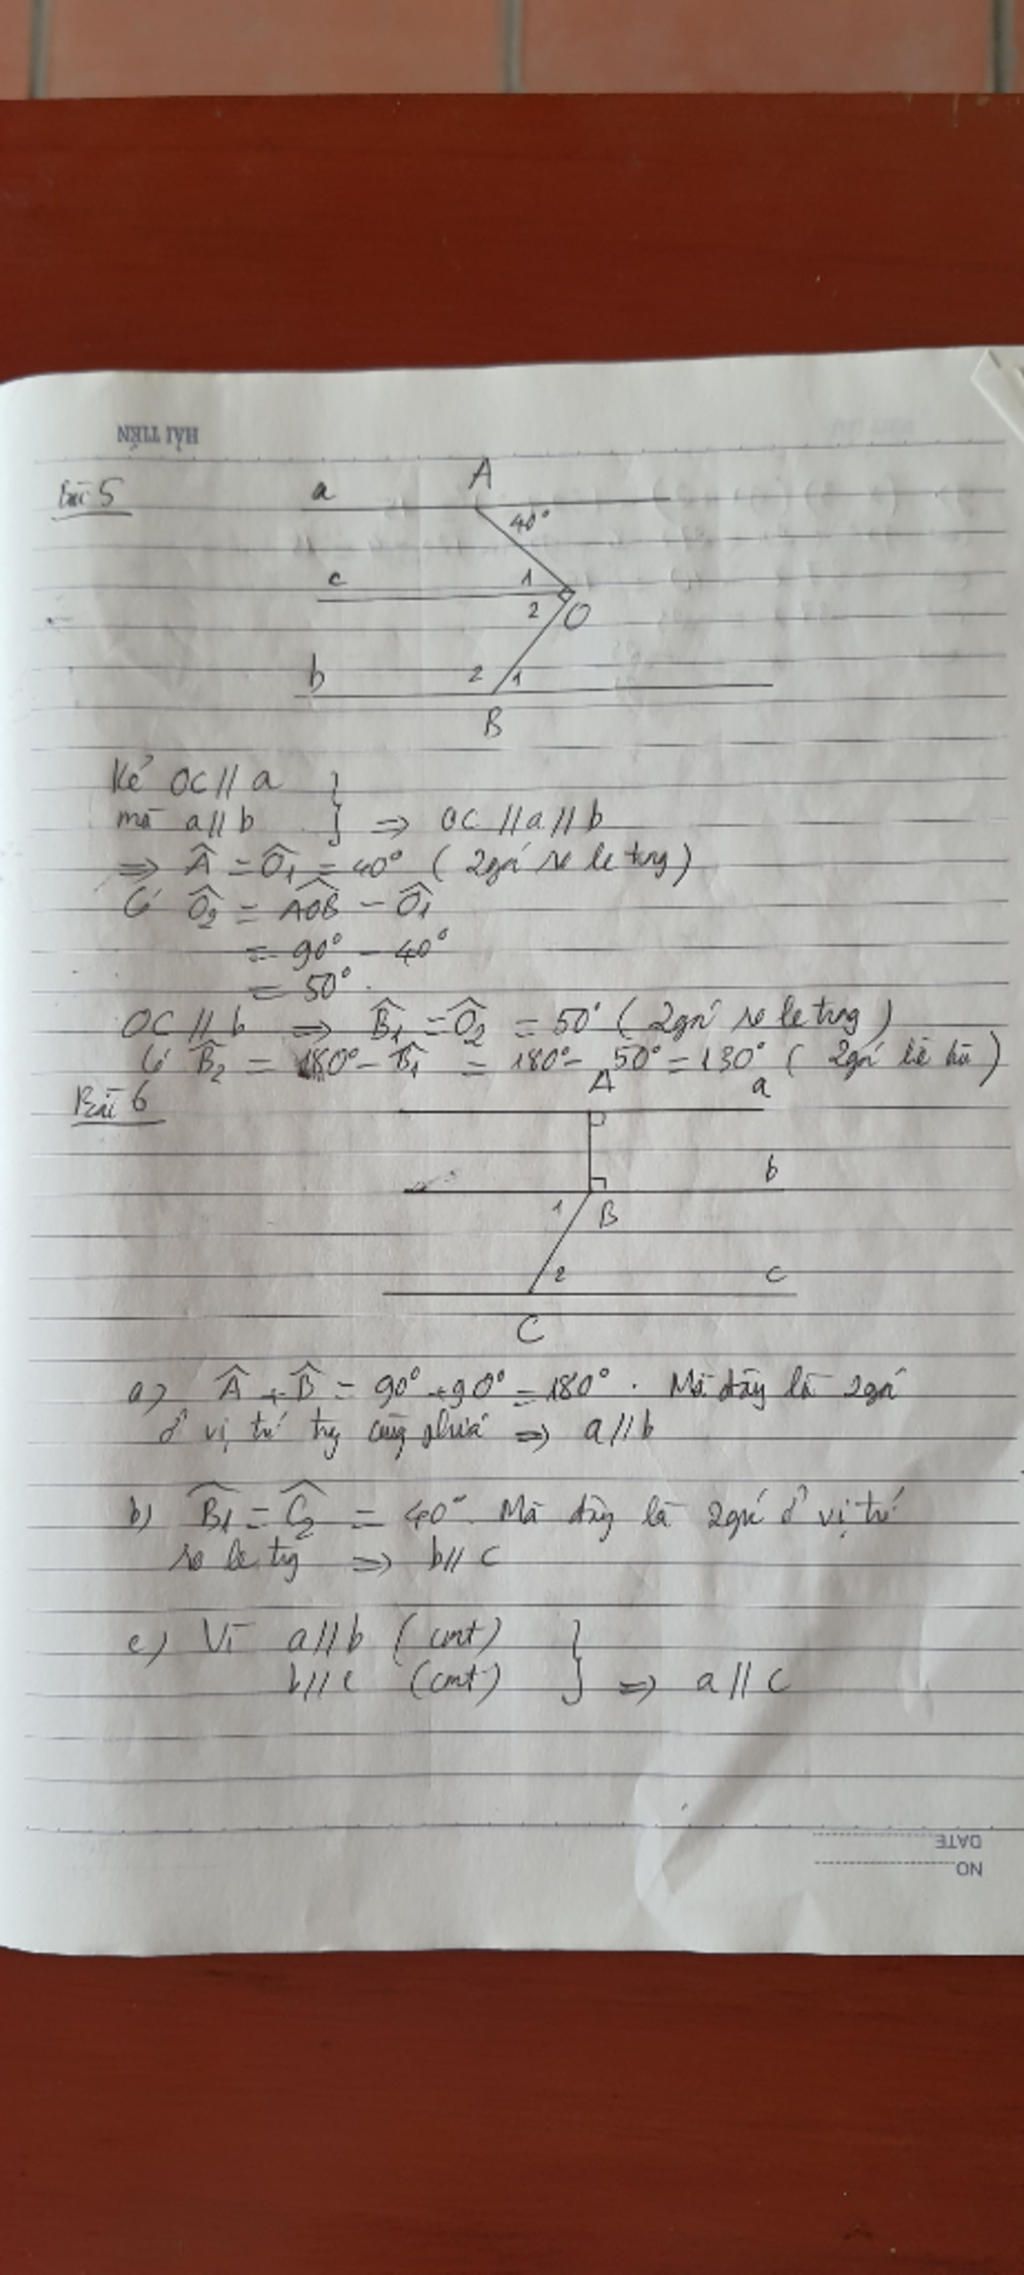 HẢI TIẾN
Bài 5
a
A
40°
c
1
2
O
b
2
1
B
Kẻ OC // a }
mà a // b } ⇒ OC // a // b
⇒ Â = Ô₁ = 40° ( 2 góc so le trong )
Có Ô₂ = AOB - Ô₁
= 90° - 40°
= 50°.
OC // b ⇒ B̂₁ = Ô₂ = 50° ( 2 góc so le trong )
Có B̂₂ = 180° - B̂₁ = 180° - 50° = 130° ( 2 góc kề bù )
Bài 6
A
a
b
1
B
2
c
C
a) Â + B̂ = 90° + 90° = 180°. Mà đây là 2 góc
ở vị trí trg cùng phía ⇒ a // b
b) B̂₁ = Ĉ₂ = 40°. Mà đây là 2 góc ở vị trí
so le trg ⇒ b // c
c) Vì a // b ( cmt ) }
b // c ( cmt ) } ⇒ a // c
DATE
NO